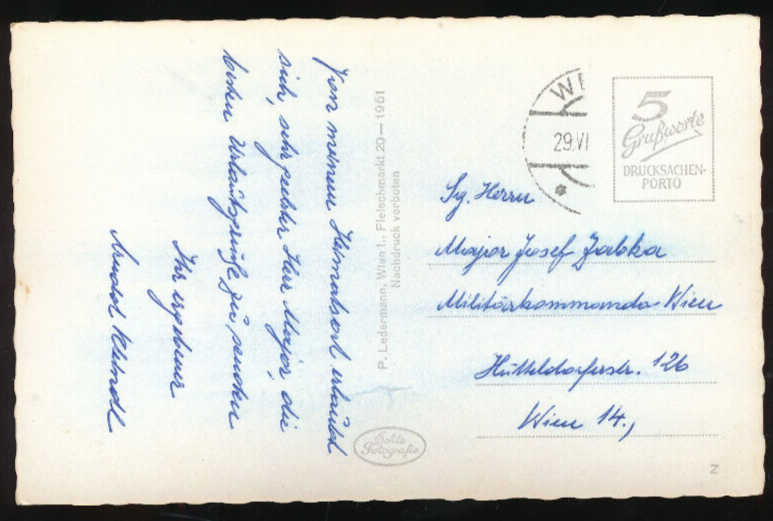 Von meinem Heimatsort erlaubt
sich, sehr geehrter Herr Major, die
besten Urlaubsgrüße zu senden
Ihr ergebener
P. Ledermann, Wien I., Fleischmarkt 20 — 1961
Nachdruck verboten
Echte
Fotografie
WI
29.VI
5
Grußworte
DRUCKSACHEN-
PORTO
Sg. Herrn
Major Josef Zabka
Militärkommando Wien
Hütteldorferstr. 126
Wien 14.,
Z